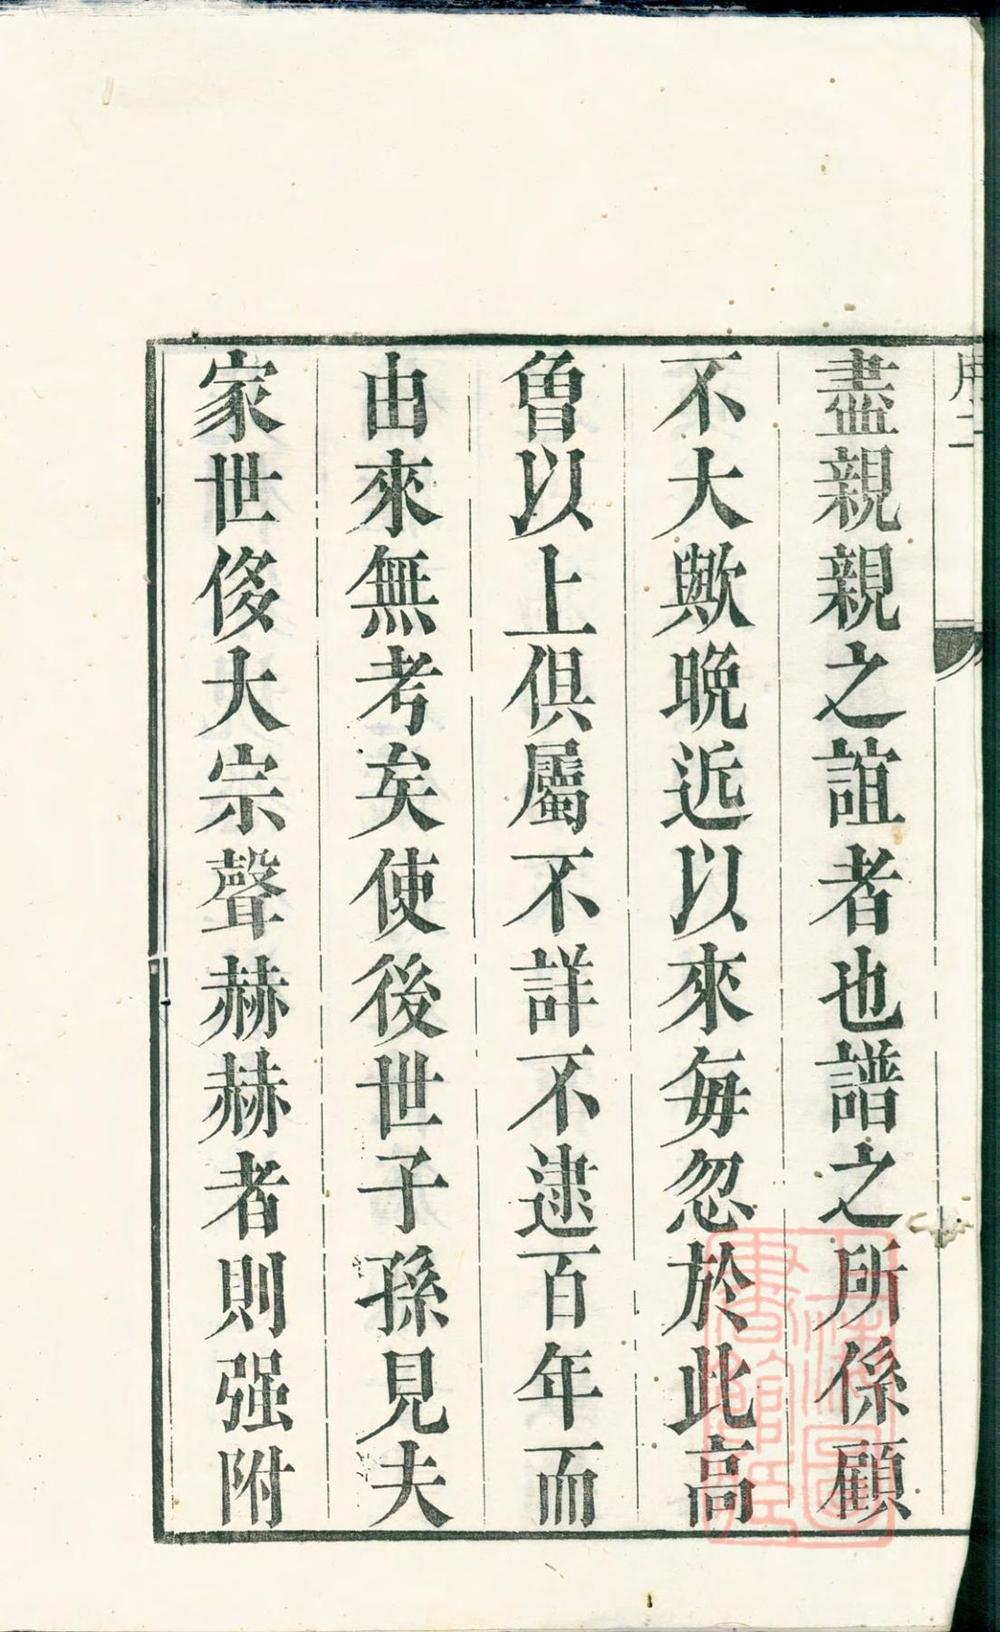 盡親親之誼者也譜之所係顧
不大歟晚近以來每忽於此高
曾以上俱屬不詳不逮百年而
由來無考矣使後世子孫見夫
家世侈大宗聲赫赫者則强附
上海圖
書館臧